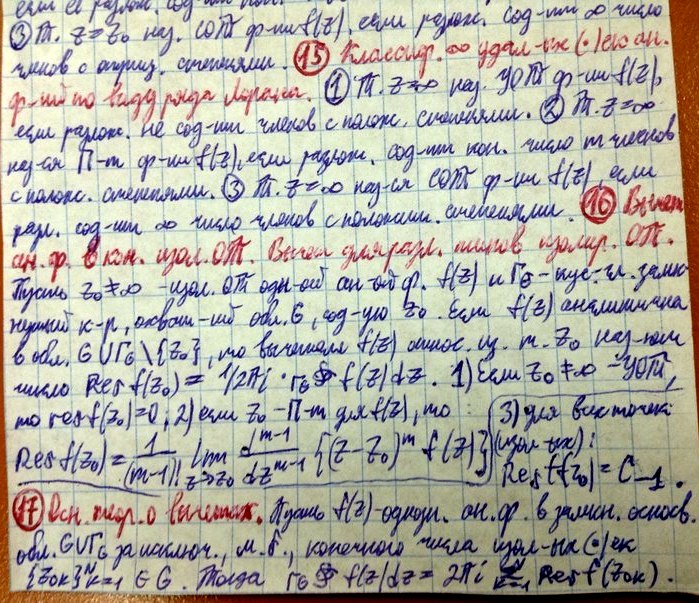 если её разлож. сод-ит кон.
③ Т. z=z₀ наз. СОТ ф-ии f(z), если разлож. сод-ит ∞ число
членов с отриц. степенями. ⑮ Классиф. ∞ удал-ых (•)ек ан.
ф-ий по виду ряда Лорана. ① Т. z=∞ наз. УОТ ф-ии f(z),
если разлож. не сод-ит членов с полож. степенями. ② Т. z=∞
наз-ся П-m ф-ии f(z), если разлож. сод-ит кон. число m членов
с полож. степенями. ③ Т. z=∞ наз-ся СОТ ф-ии f(z), если
разл. сод-ит ∞ число членов с положит. степенями. ⑯ Вычет
ан. ф. в кон. изол. ОТ. Вычет для разл. типов изолир. ОТ.
Пусть z₀≠∞ - изол. ОТ одн-ой ан-ой ф. f(z) и Γ_G - кус.-гл. замк-
нутый к-р, охват-ий обл. G, сод-ую z₀. Если f(z) аналитична
в обл. G∪Γ_G\{z₀}, то вычетом f(z) относ. из. т. z₀ наз-ют
число Res f(z₀) = 1/2πi · Γ_G∮ f(z)dz. 1) Если z₀≠∞ - УОТ,
то res f(z₀)=0; 2) если z₀ - П-m для f(z), то 3) для всех точек
Res f(z₀) = 1/(m-1)! lim z→z₀ d^{m-1}/dz^{m-1} {(z-z₀)^m f(z)} (изол-ых):
Res f(z₀) = C₋₁.
⑰ Осн. теор. о вычетах. Пусть f(z) - однозн. ан. ф. в замкн. основ.
обл. G∪Γ_G за исключ., м. б., конечного числа изол-ых (•)ек
{z₀ₖ}ᴺₖ₌₁ ∈ G. Тогда Γ_G∮ f(z)dz = 2πi Σᴺₖ₌₁ Res f(z₀ₖ).